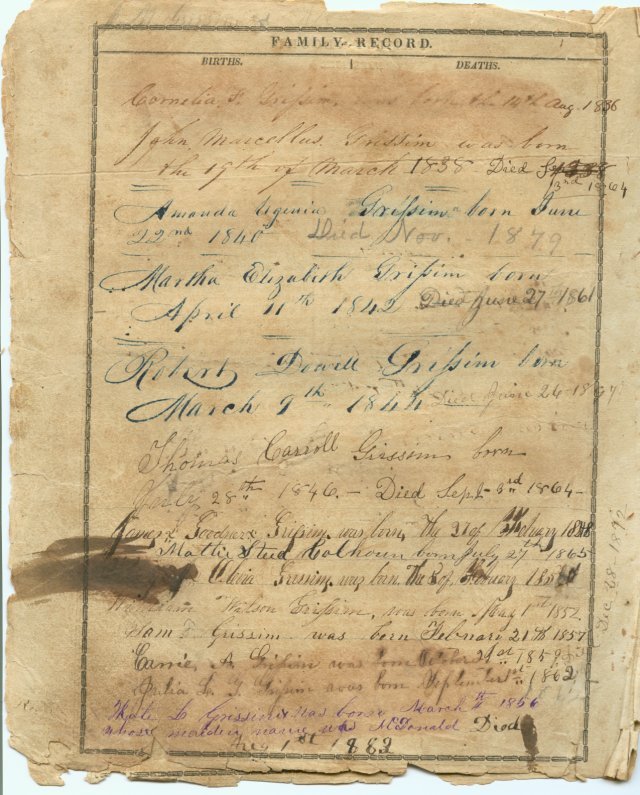 FAMILY RECORD.
BIRTHS. DEATHS.
Cornelia F. Grissim, was born the 14th Aug. 1836
John Marcellus Grissim was born
the 19th of March 1838 Died
3rd 1864
Amanda Ugenia Grissim born June
22nd 1840 Died Nov. 1879
Martha Elizabeth Grissim born
April 11th 1842 Died June 27 1861
Robert Dowell Grissim born
March 9th 1844 Died June 26
Thomas Carroll Grissim born
28th 1846. — Died Sept 3rd 1864 —
Grissim was born, the of February 1848
Mattie Stud Calhoun born July 27th 1865
Clara Grissim was born the of February
William Wilson Grissim, was born May 1st 1852
Grissim was born Februari 21th 1857
Carrie A Grissim was born October 1859
Julia L. T. Grissim was born September 1st 1862
Kate L Grissim was borne March 1856
whose maiden name was McDonald Died
Aug 1st 1882
Dec 68 1892